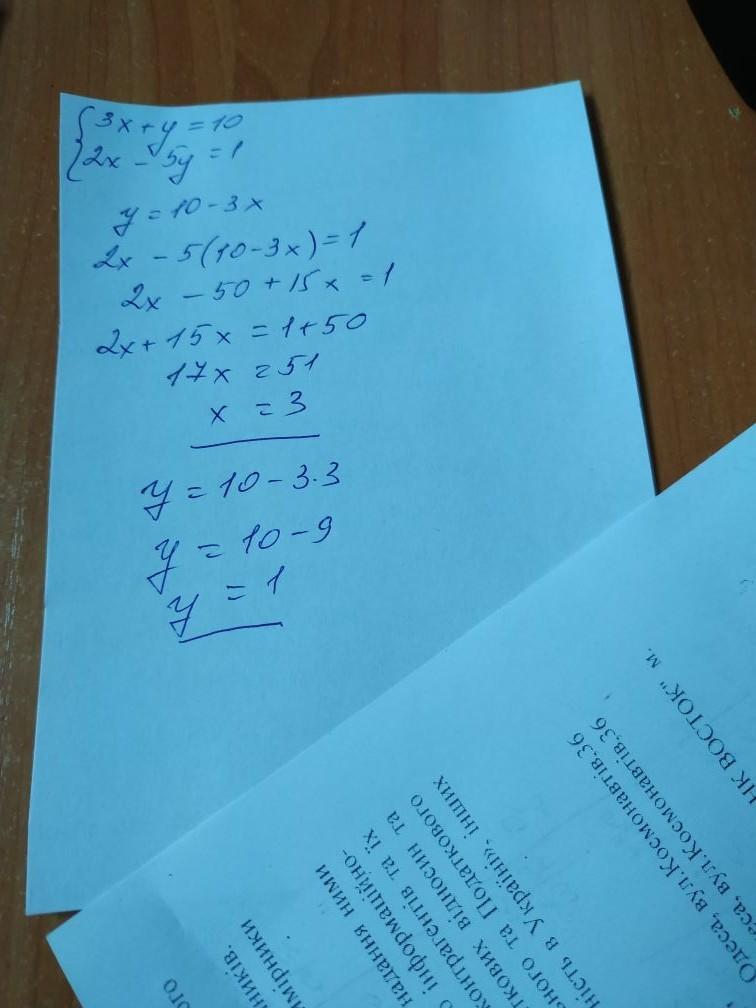 3x + y = 10
2x - 5y = 1
y = 10 - 3x
2x - 5(10 - 3x) = 1
2x - 50 + 15x = 1
2x + 15x = 1 + 50
17x = 51
x = 3
y = 10 - 3·3
y = 10 - 9
y = 1
НК ВОСТОК" м.
Одеса, вул.Космонавтів,36
деса, вул.Космонавтів,36
ність в Україні», інших
ного та Податкового
ткових відносин та
контрагентів та їх
інформаційно-
надання ними
ників.
мірники
ого